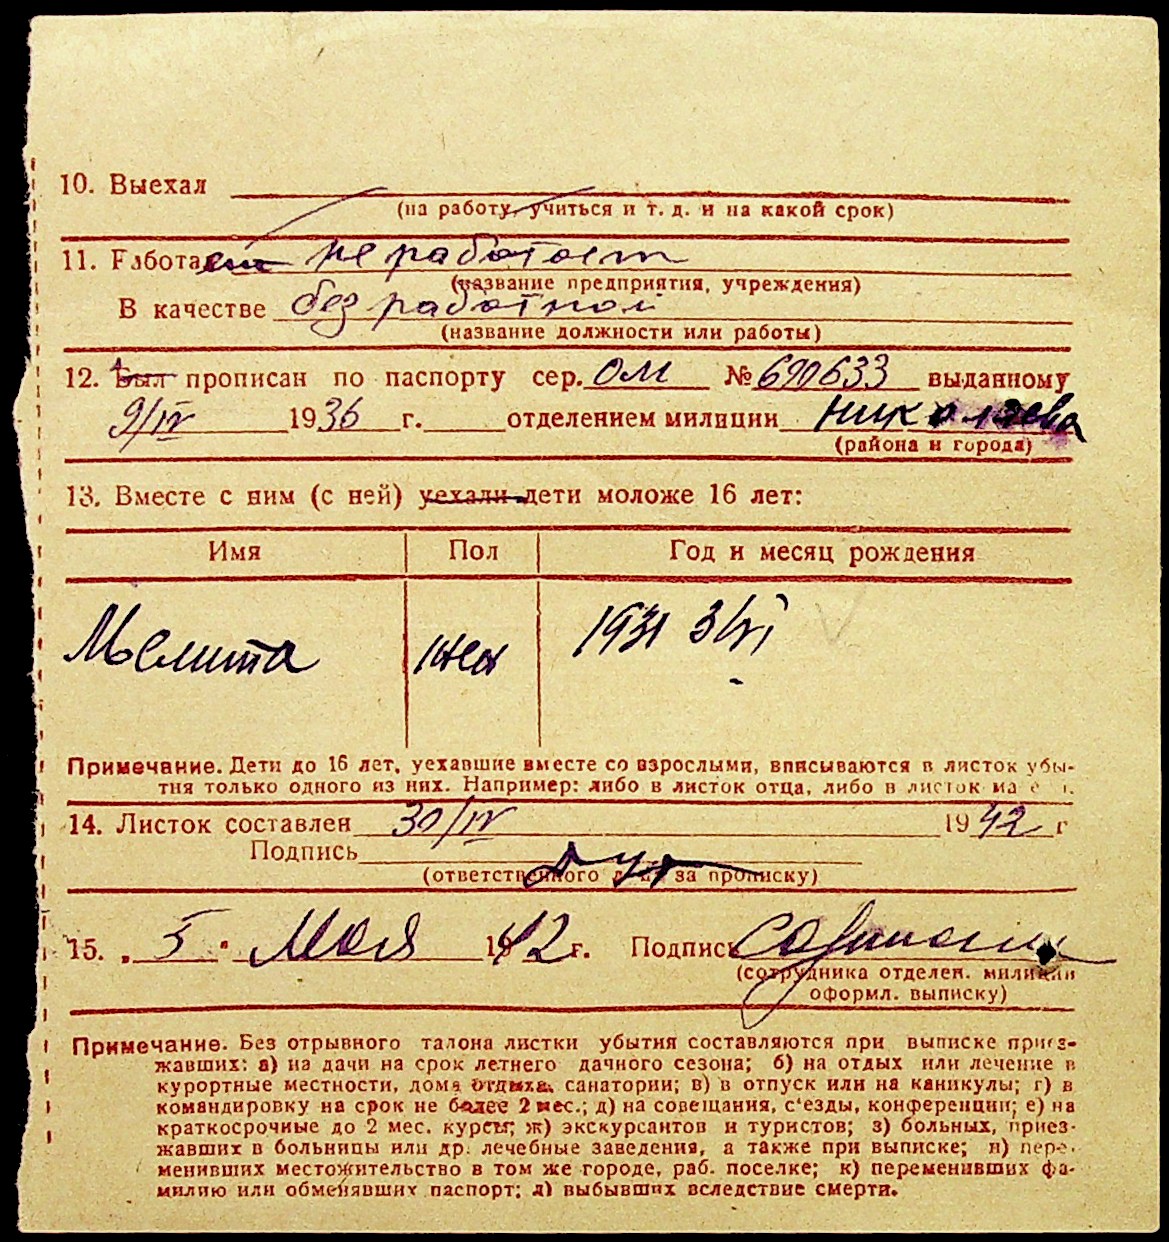 10. Выехал
(на работу, учиться и т. д. и на какой срок)
11. Работает не работает
(название предприятия, учреждения)
В качестве без работной
(название должности или работы)
12. Был прописан по паспорту сер. ОМ № 690633 выданному
9/IV 1936 г. отделением милиции Николаева
(района и города)
13. Вместе с ним (с ней) уехали дети моложе 16 лет:
Имя Пол Год и месяц рождения
Мелита жен 1931 3/VI
Примечание. Дети до 16 лет, уехавшие вместе со взрослыми, вписываются в листок убы-
тия только одного из них. Например: либо в листок отца, либо в листок
14. Листок составлен 30/IV 1942 г
Подпись
(ответственного за прописку)
15. „5" Мая 1942 г. Подпись
(сотрудника отделен. милиции
оформл. выписку)
Примечание. Без отрывного талона листки убытия составляются при выписке приез-
жавших: а) на дачи на срок летнего дачного сезона; б) на отдых или лечение в
курортные местности, дома отдыха, санатории; в) в отпуск или на каникулы; г) в
командировку на срок не более 2 мес.; д) на совещания, с'езды, конференции; е) на
краткосрочные до 2 мес. курсы; ж) экскурсантов и туристов; з) больных, приез-
жавших в больницы или др. лечебные заведения, а также при выписке; и) пере-
менивших местожительство в том же городе, раб. поселке; к) переменивших фа-
милию или обменявших паспорт; л) выбывших вследствие смерти.